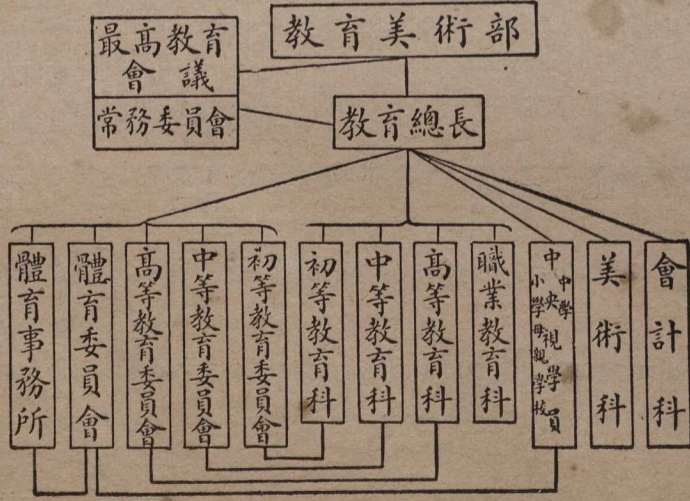 教育美術部
最高教育
會議
常務委員會
教育總長
體育事務所
體育委員會
高等教育委員會
中等教育委員會
初等教育委員會
初等教育科
中等教育科
高等教育科
職業教育科
中央視學員
中學
小學母親學校
美術科
會計科